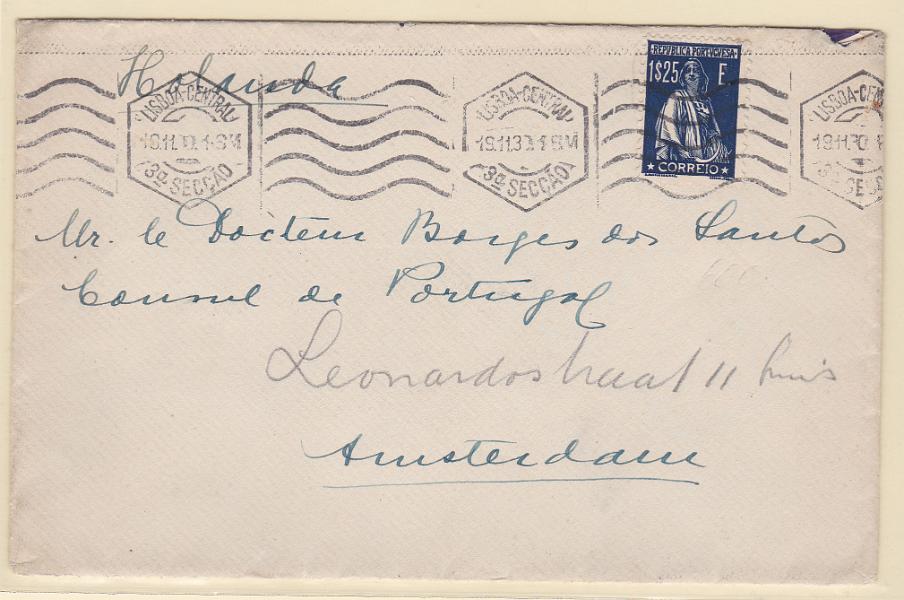 Holanda
LISBOA-CENTRAL
3ª SECÇÃO
LISBOA-CENTRAL
19.11.30 1-8M
3ª SECÇÃO
REPUBLICA PORTUGUESA
1$25 E
CORREIO
LISBOA-CENTRAL
Mr. le Docteur Borges dos Santos
Consul de Portugal
Leonardostraat 11 huis
Amsterdam